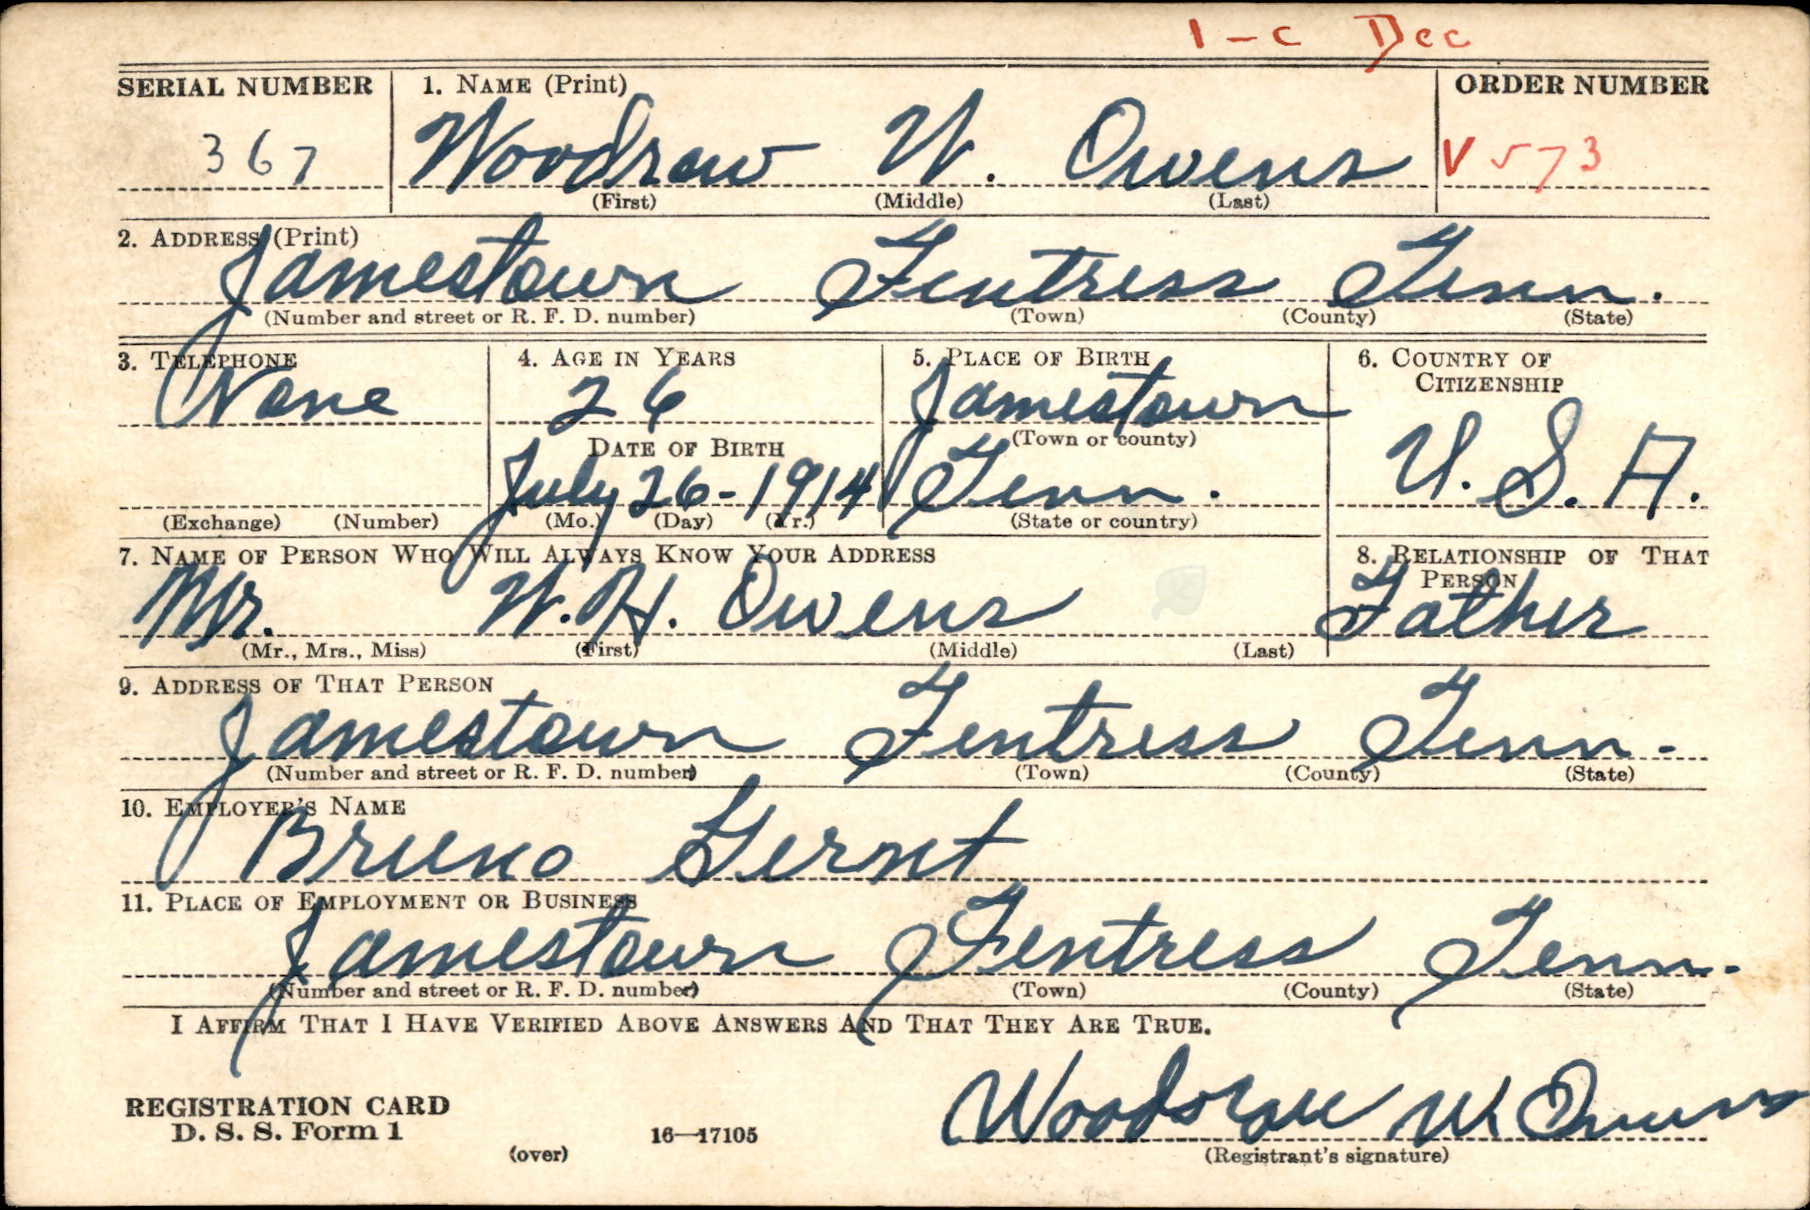 1-C Dec
SERIAL NUMBER 1. NAME (Print) ORDER NUMBER
367 Woodrow W. Owens V573
(First) (Middle) (Last)
2. ADDRESS (Print)
Jamestown Fentress Tenn.
(Number and street or R. F. D. number) (Town) (County) (State)
3. TELEPHONE 4. AGE IN YEARS 5. PLACE OF BIRTH 6. COUNTRY OF CITIZENSHIP
None 26 Jamestown
DATE OF BIRTH (Town or county)
July 26-1914 Tenn. U.S.A.
(Exchange) (Number) (Mo.) (Day) (Yr.) (State or country)
7. NAME OF PERSON WHO WILL ALWAYS KNOW YOUR ADDRESS 8. RELATIONSHIP OF THAT PERSON
Mr. W.H. Owens Father
(Mr., Mrs., Miss) (First) (Middle) (Last)
9. ADDRESS OF THAT PERSON
Jamestown Fentress Tenn.
(Number and street or R. F. D. number) (Town) (County) (State)
10. EMPLOYER'S NAME
Bruno Gernt
11. PLACE OF EMPLOYMENT OR BUSINESS
Jamestown Fentress Tenn.
(Number and street or R. F. D. number) (Town) (County) (State)
I AFFIRM THAT I HAVE VERIFIED ABOVE ANSWERS AND THAT THEY ARE TRUE.
Woodrow W Owens
REGISTRATION CARD
D. S. S. Form 1
(over) 16—17105 (Registrant's signature)